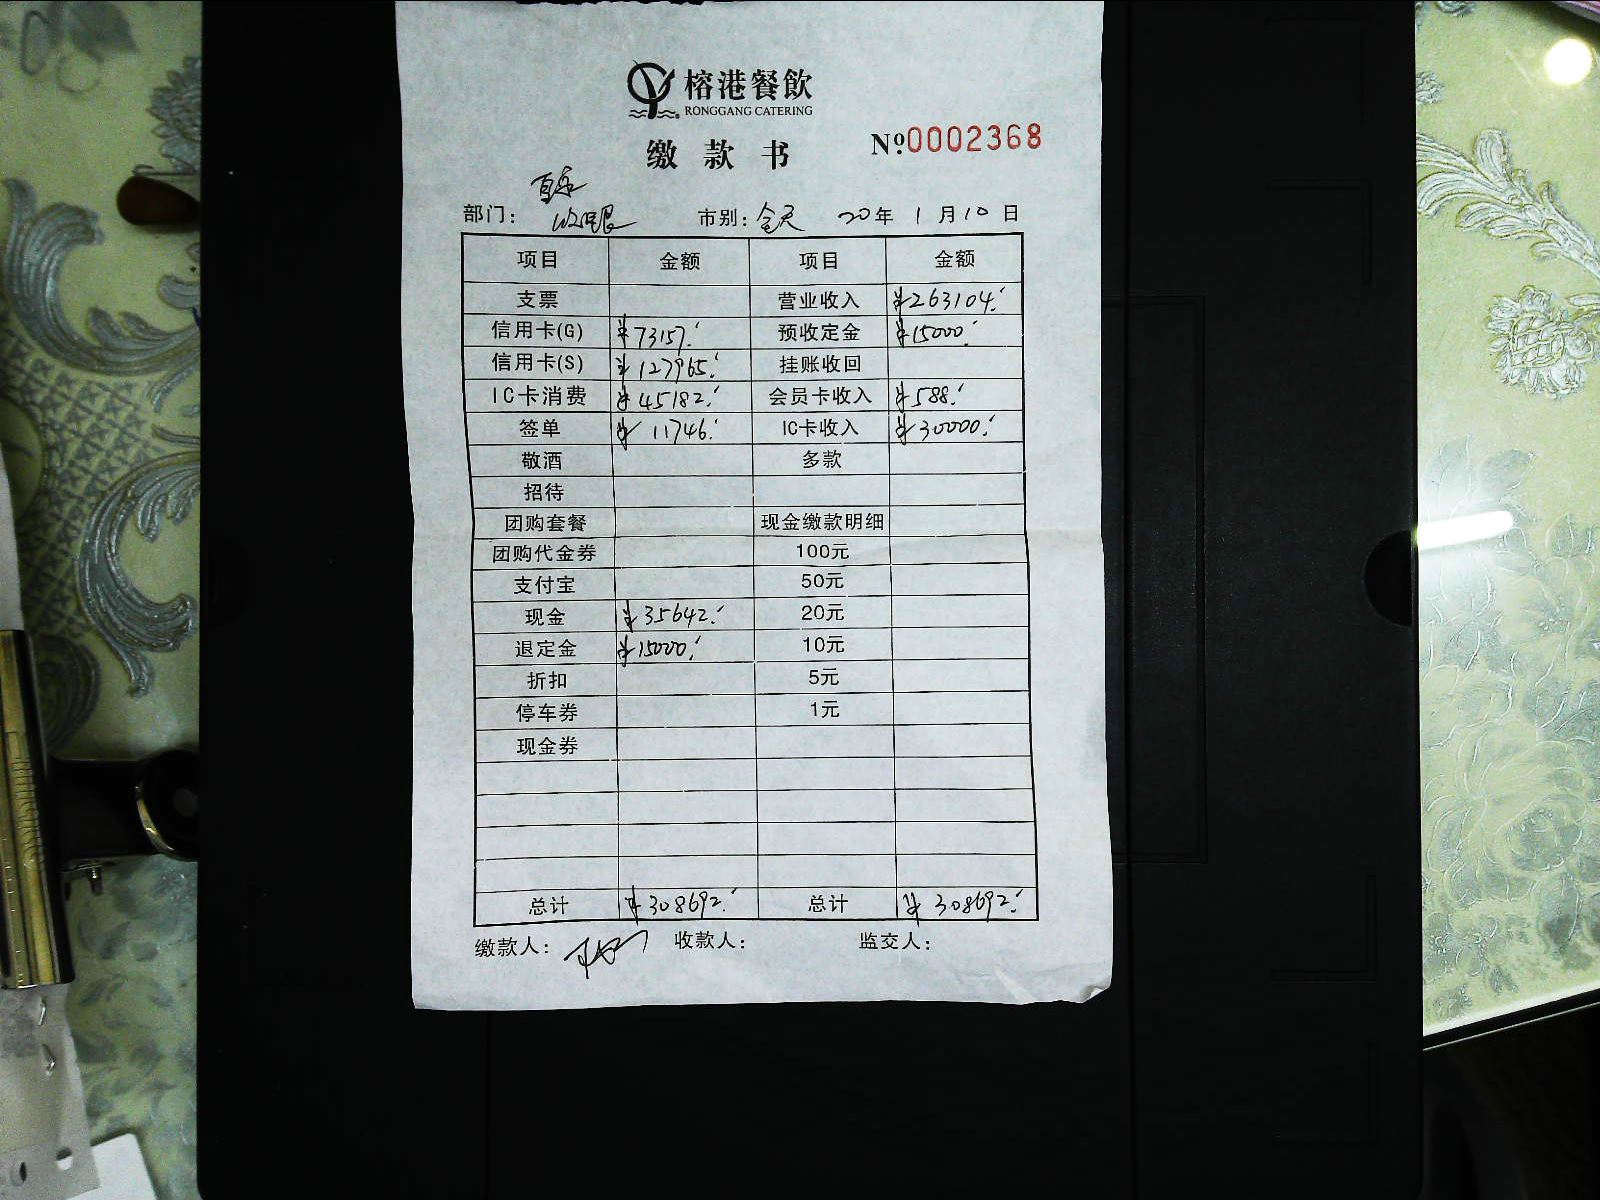 榕港餐飲
RONGGANG CATERING
缴款书 №0002368
部门： 收银 市别：全天 20年1月10日
项目 金额 项目 金额
支票 营业收入 ¥263104.
信用卡(G) ¥73157. 预收定金 ¥15000.
信用卡(S) ¥127965. 挂账收回
IC卡消费 ¥45182. 会员卡收入 ¥588.
签单 ¥11746. IC卡收入 ¥30000.
敬酒 多款
招待
团购套餐 现金缴款明细
团购代金券 100元
支付宝 50元
现金 ¥35642. 20元
退定金 ¥15000. 10元
折扣 5元
停车券 1元
现金券
总计 ¥308692. 总计 ¥308692.
缴款人： 收款人： 监交人：